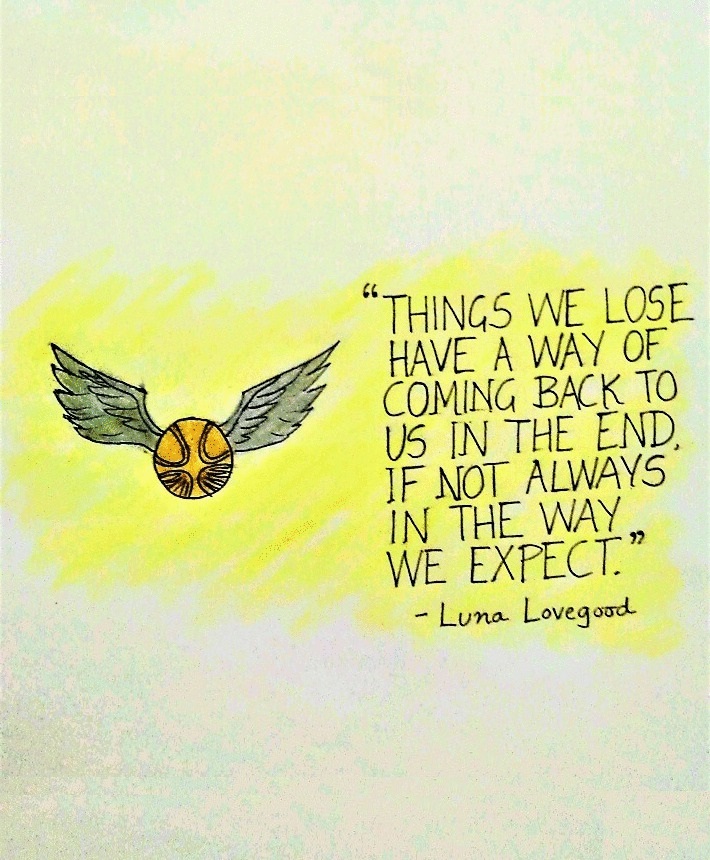 “THINGS WE LOSE
HAVE A WAY OF
COMING BACK TO
US IN THE END,
IF NOT ALWAYS
IN THE WAY
WE EXPECT.”
- Luna Lovegood